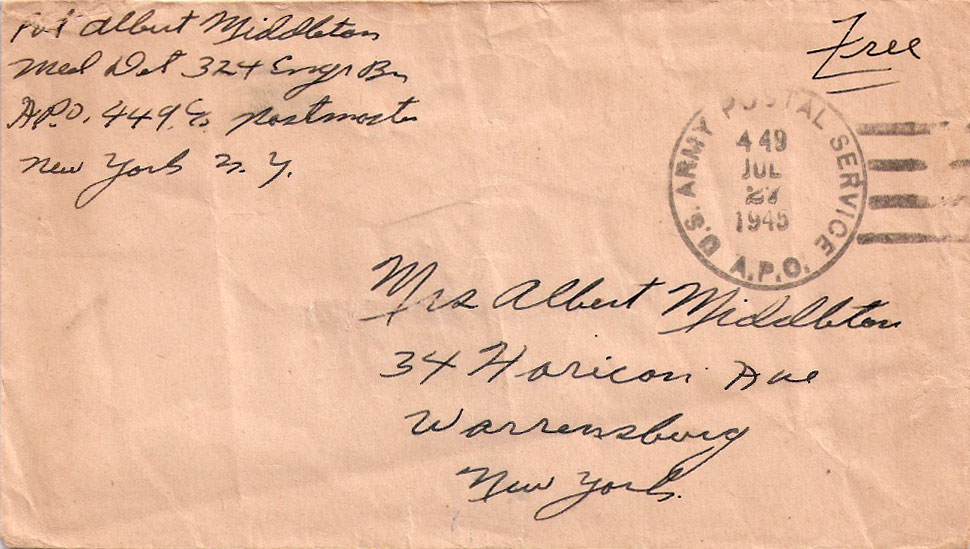 Pvt Albert Middleton
Med Det 324 Engr Bn
A.P.O. 449 % Postmaster
New York N. Y.
Free
U.S. ARMY POSTAL SERVICE
449
JUL
27
1945
A.P.O.
Mrs Albert Middleton
34 Horicon Ave
Warrensburg
New York.